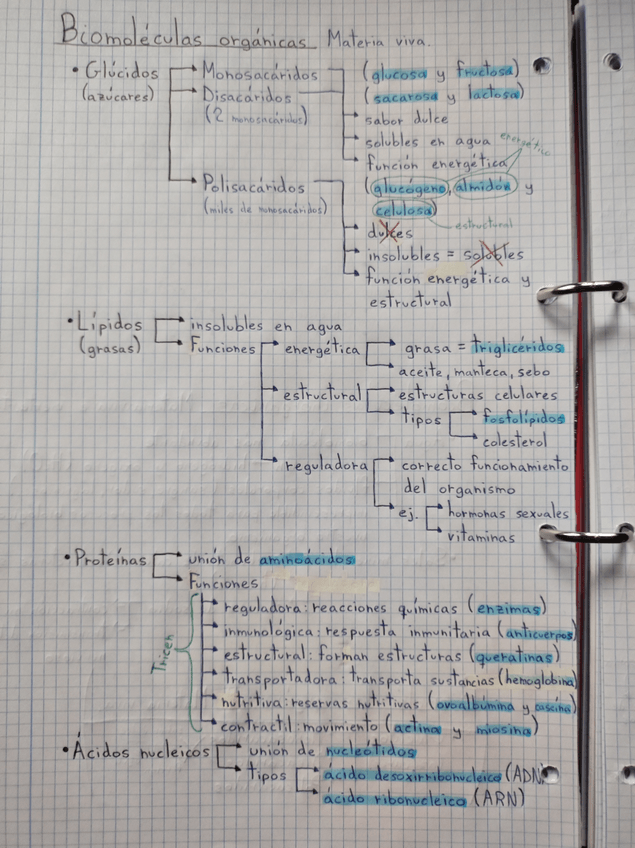 Biomoléculas orgánicas Materia viva.
• Glúcidos
(azúcares)
Monosacáridos (glucosa y fructosa)
Disacáridos (sacarosa y lactosa)
(2 monosacáridos) sabor dulce
solubles en agua energético
función energética
Polisacáridos (glucógeno, almidón y
(miles de monosacáridos) celulosa) estructural
dulces
insolubles = solubles
función energética y
estructural
• Lípidos insolubles en agua
(grasas) Funciones energética grasa = triglicéridos
aceite, manteca, sebo
estructural estructuras celulares
tipos fosfolípidos
colesterol
reguladora correcto funcionamiento
del organismo
ej. hormonas sexuales
vitaminas
• Proteínas unión de aminoácidos
Funciones
Tricen
reguladora: reacciones químicas (enzimas)
inmnológica: respuesta inmunitaria (anticuerpos)
estructural: forman estructuras (queratinas)
transportadora: transporta sustancias (hemoglobina)
nutritiva: reservas nutritivas (ovoalbúmina y caseína)
contractil: movimiento (actina y miosina)
• Ácidos nucleicos unión de nucleótidos
tipos ácido desoxirribonucleico (ADN)
ácido ribonucleico (ARN)